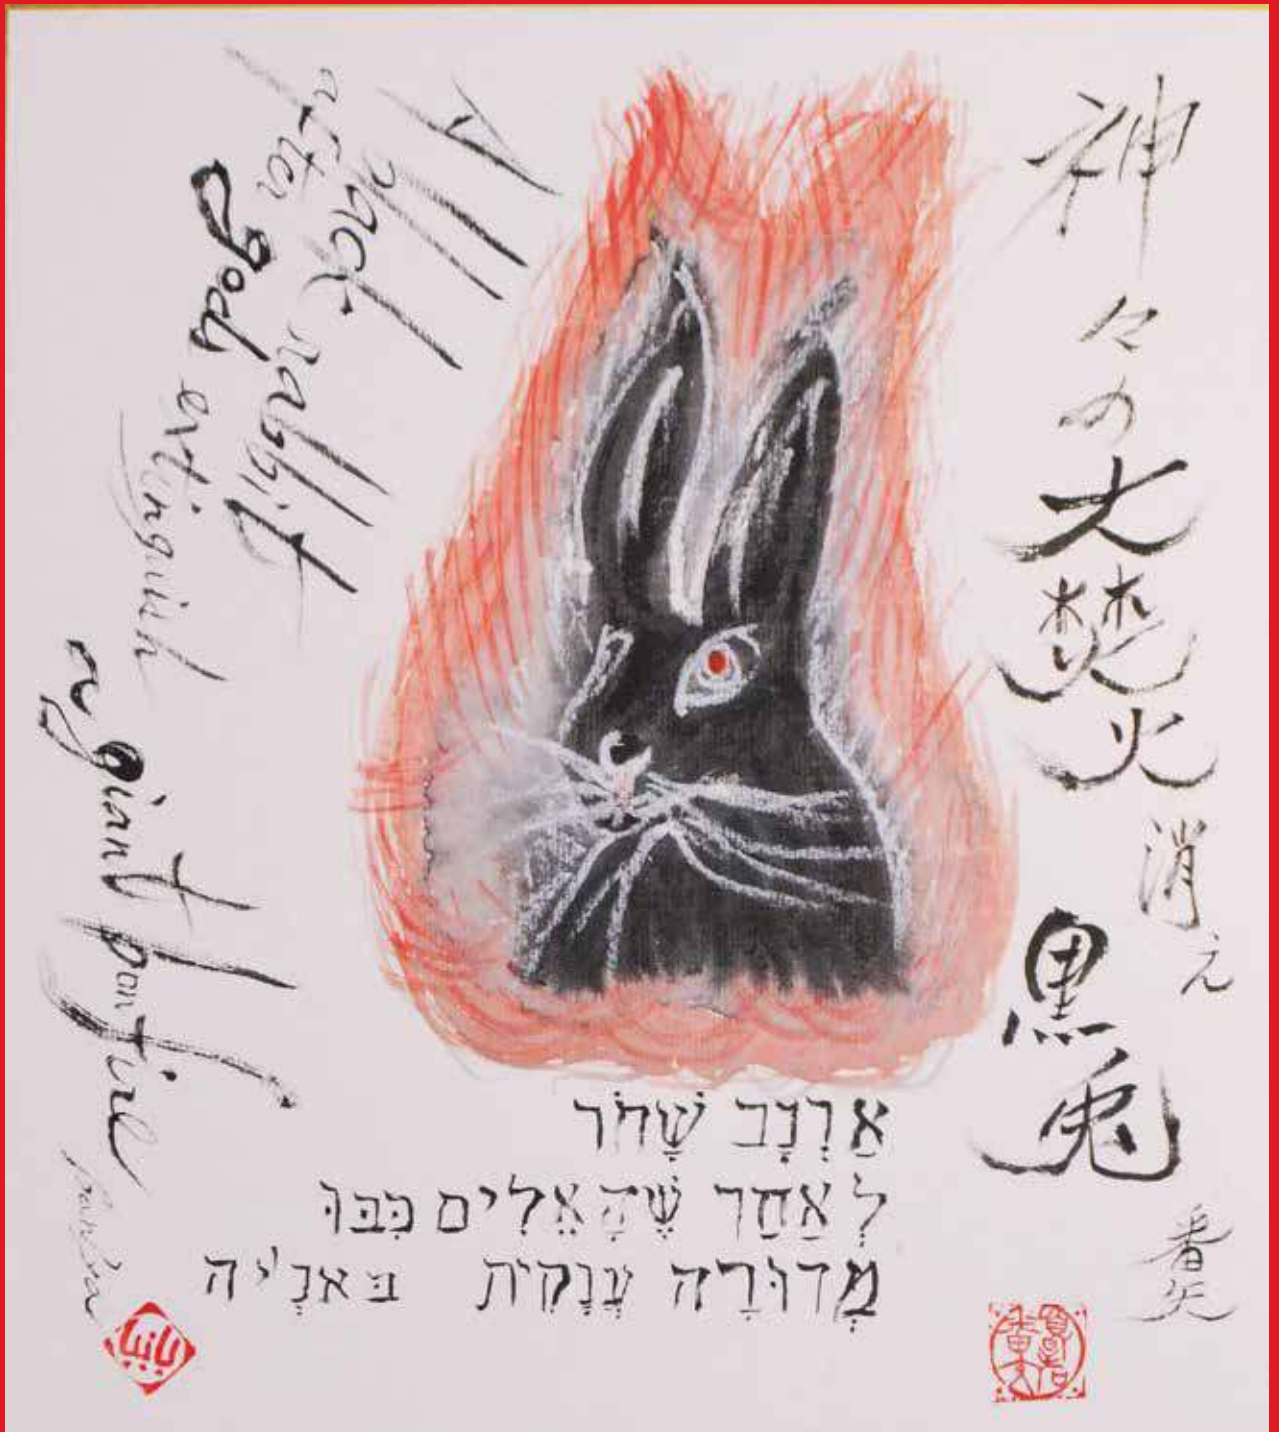 神々の大焚火消え黒兎
番矢
A black rabbit
after gods extinguish
a giant bonfire
Ban'ya
אַרְנָב שָׁחֹר
לְאַחַר שֶׁהָאֵלִים כִּבּוּ
מְדוּרָה עֲנָקִית בּאנְ'יה